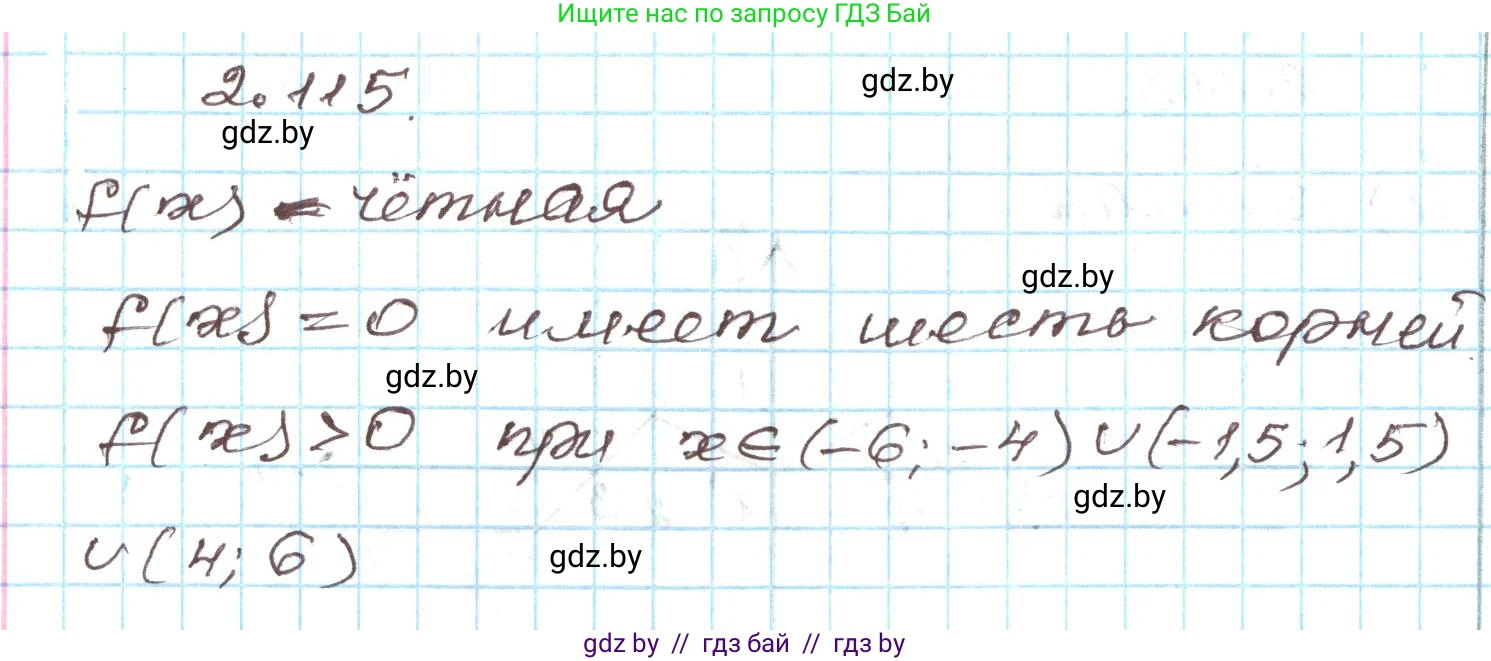 Ищите нас по запросу ГДЗ Бай
2.115.
gdz.by
gdz.by
f(x) - чётная
gdz.by
f(x) = 0 имеет шесть корней.
gdz.by
f(x) > 0 при x ∈ (-6; -4) ∪ (-1,5; 1,5)
gdz.by
∪ (4; 6)
gdz.by
gdz.by // гдз бай // гдз.by